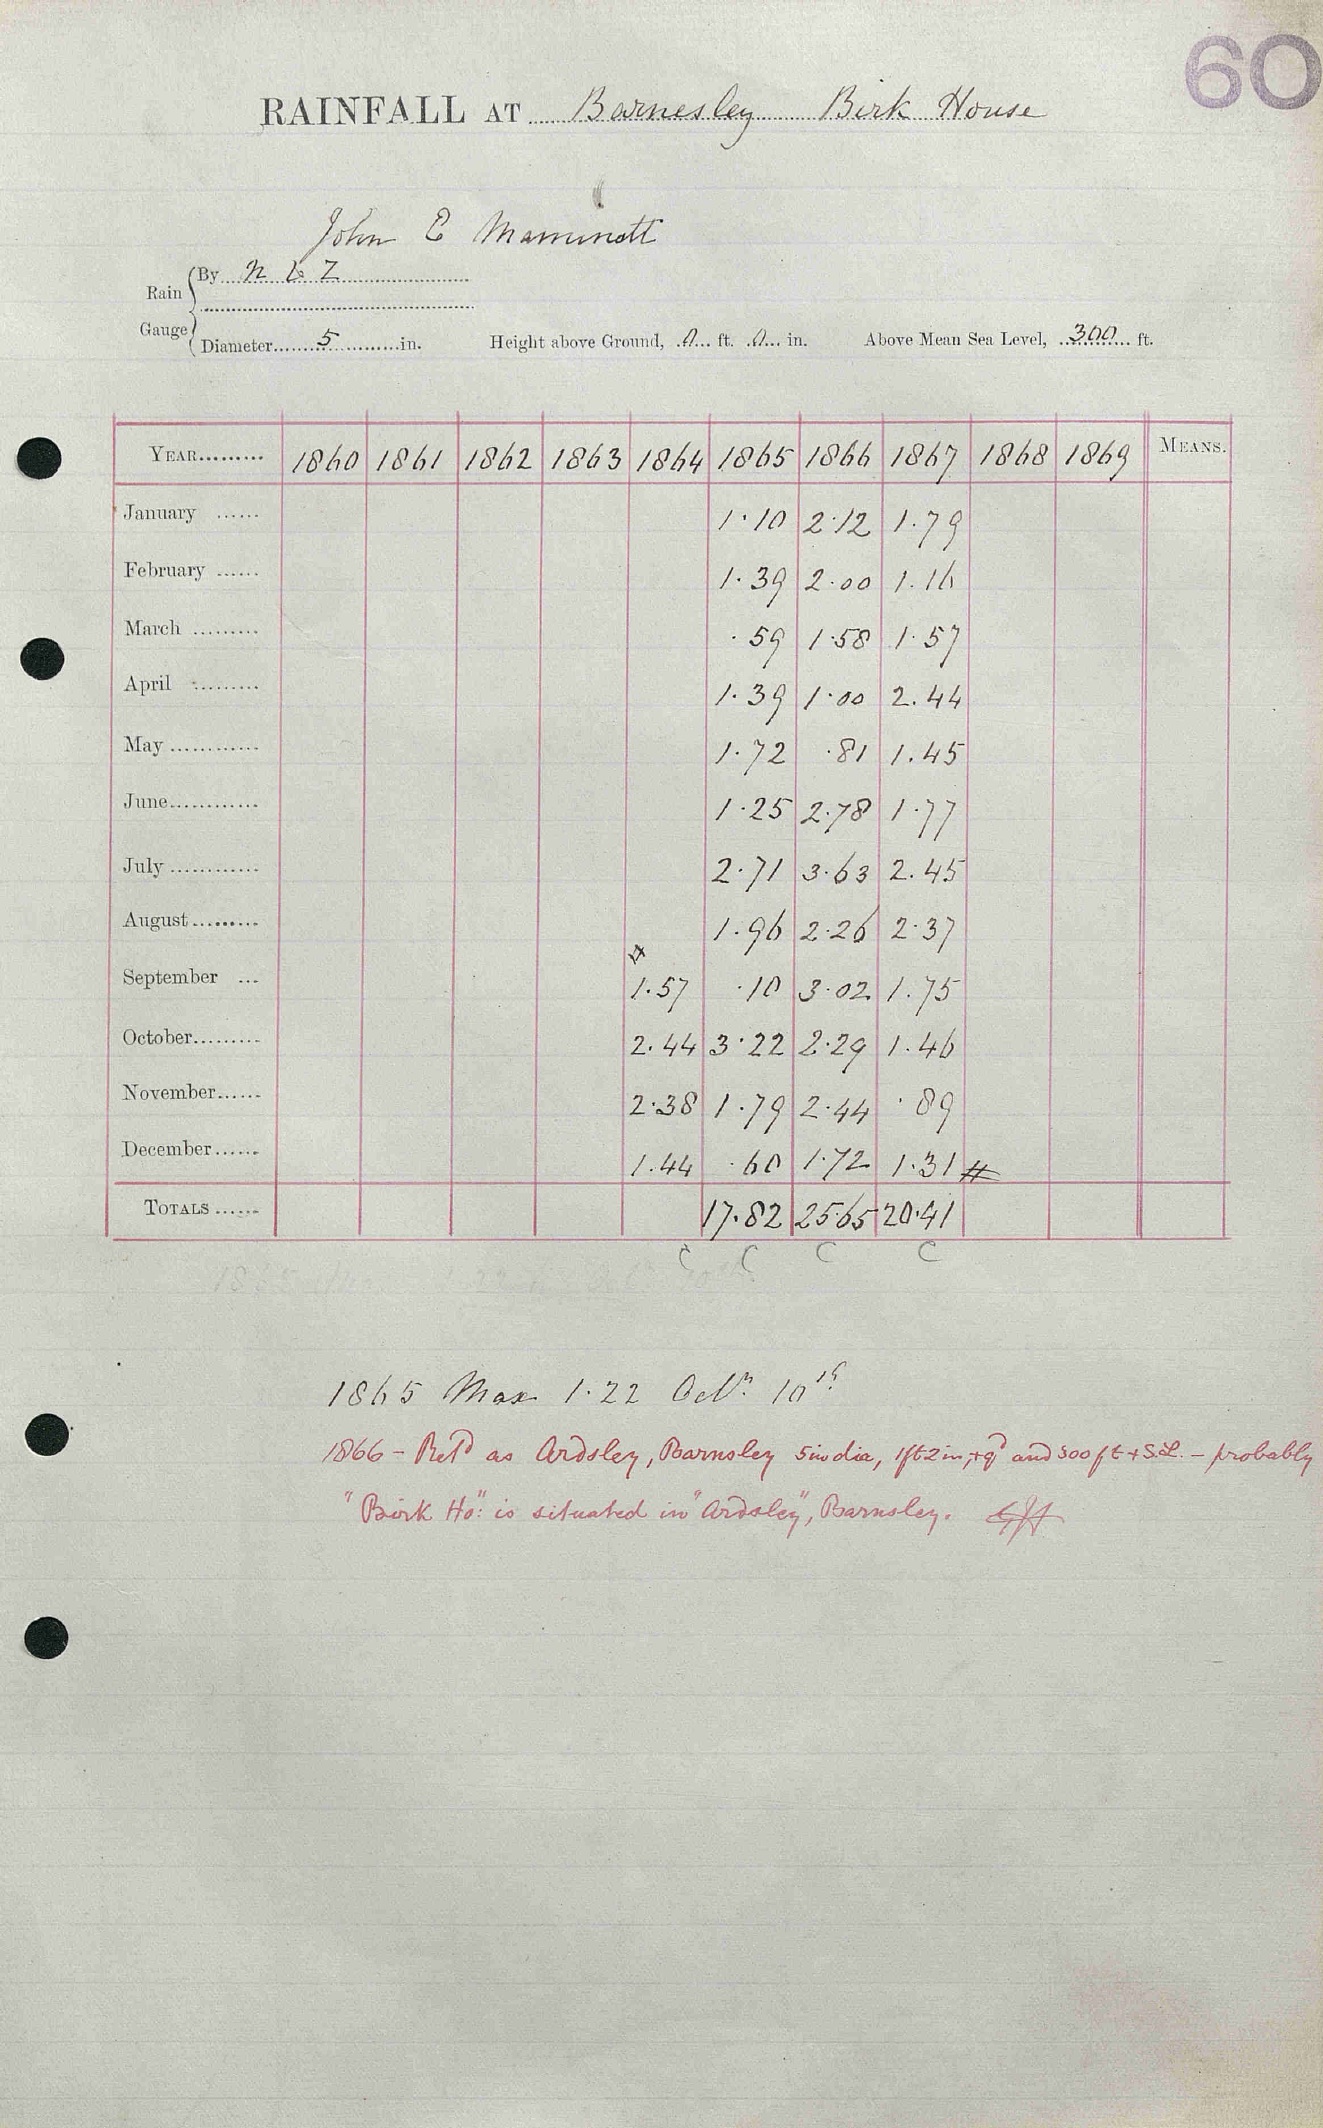 60
RAINFALL AT Barnesley Birk House
John E
Rain Gauge
By N & Z
Diameter 5 in. Height above Ground, 0 ft. 0 in. Above Mean Sea Level, 300 ft.
YEAR 1860 1861 1862 1863 1864 1865 1866 1867 1868 1869 MEANS.
January 1.10 2.12 1.79
February 1.39 2.00 1.16
March .59 1.58 1.57
April 1.39 1.00 2.44
May 1.72 .81 1.45
June 1.25 2.78 1.77
July 2.71 3.63 2.45
August 1.96 2.26 2.37
September 1.57 .10 3.02 1.75
October 2.44 3.22 2.29 1.46
November 2.38 1.79 2.44 .89
December 1.44 .60 1.72 1.31 #
TOTALS 17.82 25.65 20.41
C C C C
1865 Max 1.22 Octr. 10th
1866 - Retd as Ardsley, Barnsley 5 in dia, 1ft 2 in, + gd and 300 ft + S.L. - probably
"Birk Ho": is situated in "Ardsley", Barnsley.